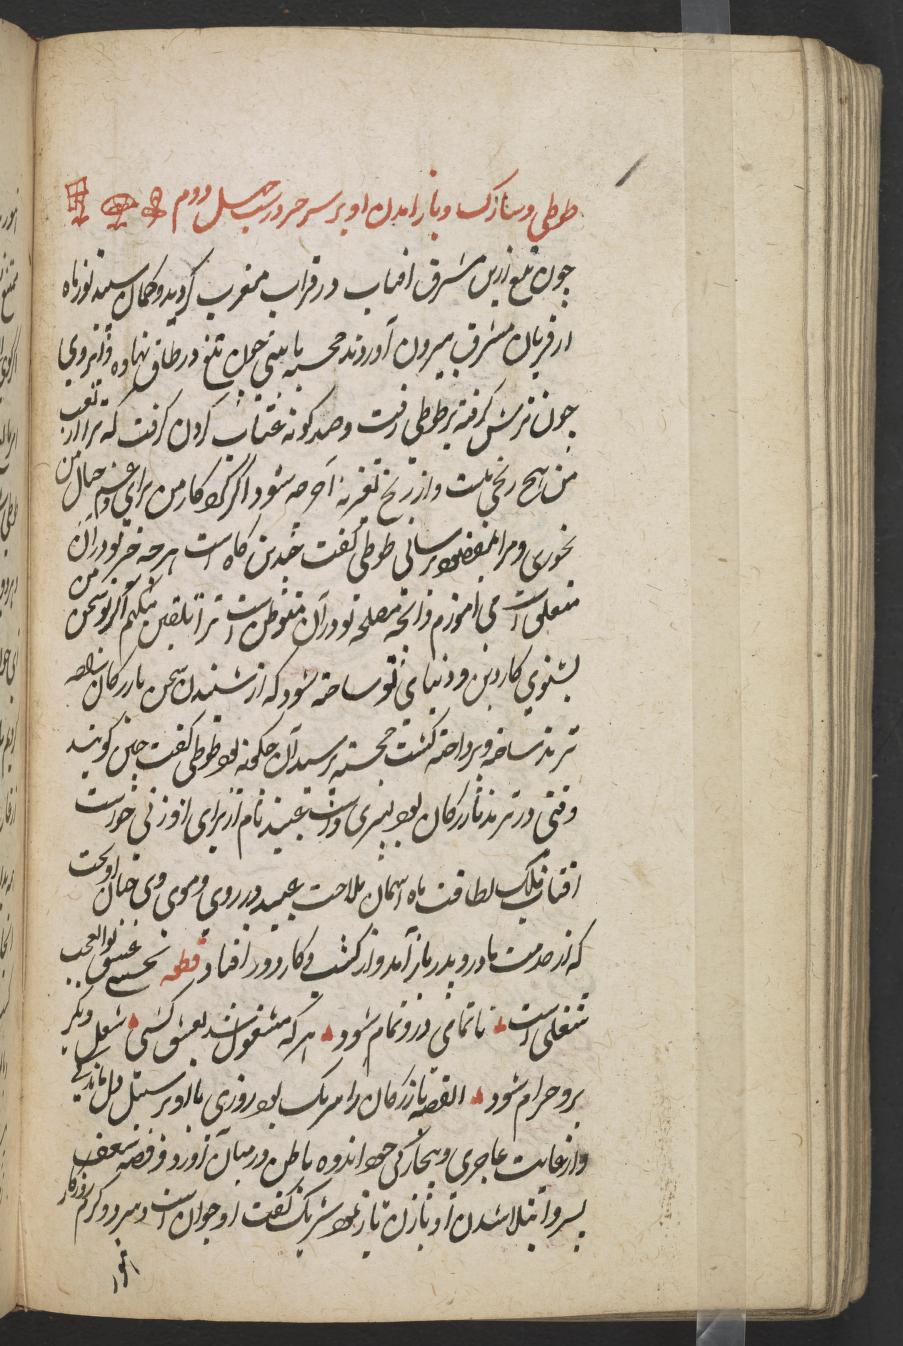 طوطی و سارک و باز امدن او بر سر حرف در شب چهل و دوم
چون تیغ زرین مشرق افتاب در قراب مغرب کردید و کمان سیمد توز ماه
از قربان مشرق بیرون آوردند خجسته با بینی چون تیغ در طاق نهاده و ابروی
چون ترش کرفته بر طوطی رفت و صد کونه عتاب کردن کرفت که ترا از تعب
من هیچ رنجی نیست و از رنج تغربه آخر چه شود اکر کاه کار من برای و غم حال من
نخوری و مرا بمقصود رسانی طوطی کفت چندین کاه است هر چه خیر تو در ان
متعلق است می اموزم و انچه مصلحه تو در آن منوط است ترا تلقین میکنم اکر تو سخن من
بشنوی کار دین و دنیای تو ساخته شود که از شنیدن سخن بازرکان
ترمذ ساخته و پرداخته کشت خجسته پرسید آن چکونه بود طوطی کفت چنین کویند
وقتی در ترمذ بازرکان بود پسری داشت عبید نام از برای او زنی خواست
افتاب فلک لطافت ماه اسمان ملاحت عبید در روی و موی وی چنان اویخت
که از خدمت مادر و پدر باز آمد و از کشت و کار دور افتاد قطعه نخشبی عشق بو العجب
شغلی است تا تمامی درو تمام شود هر که مشغول شد بعشق کسی شغل دیکر
برو حرام شود القصه بازرکان را شریک بود روزی با او بر سبیل دل ماندکی
و از غایت عاجزی و بیچارکی خود اندوه باطن در میان آورد و قصه شعف
پسر و ابتلا شدن او با زن باز نمود شریک کفت او جوان است و سرد و کرم روزکار